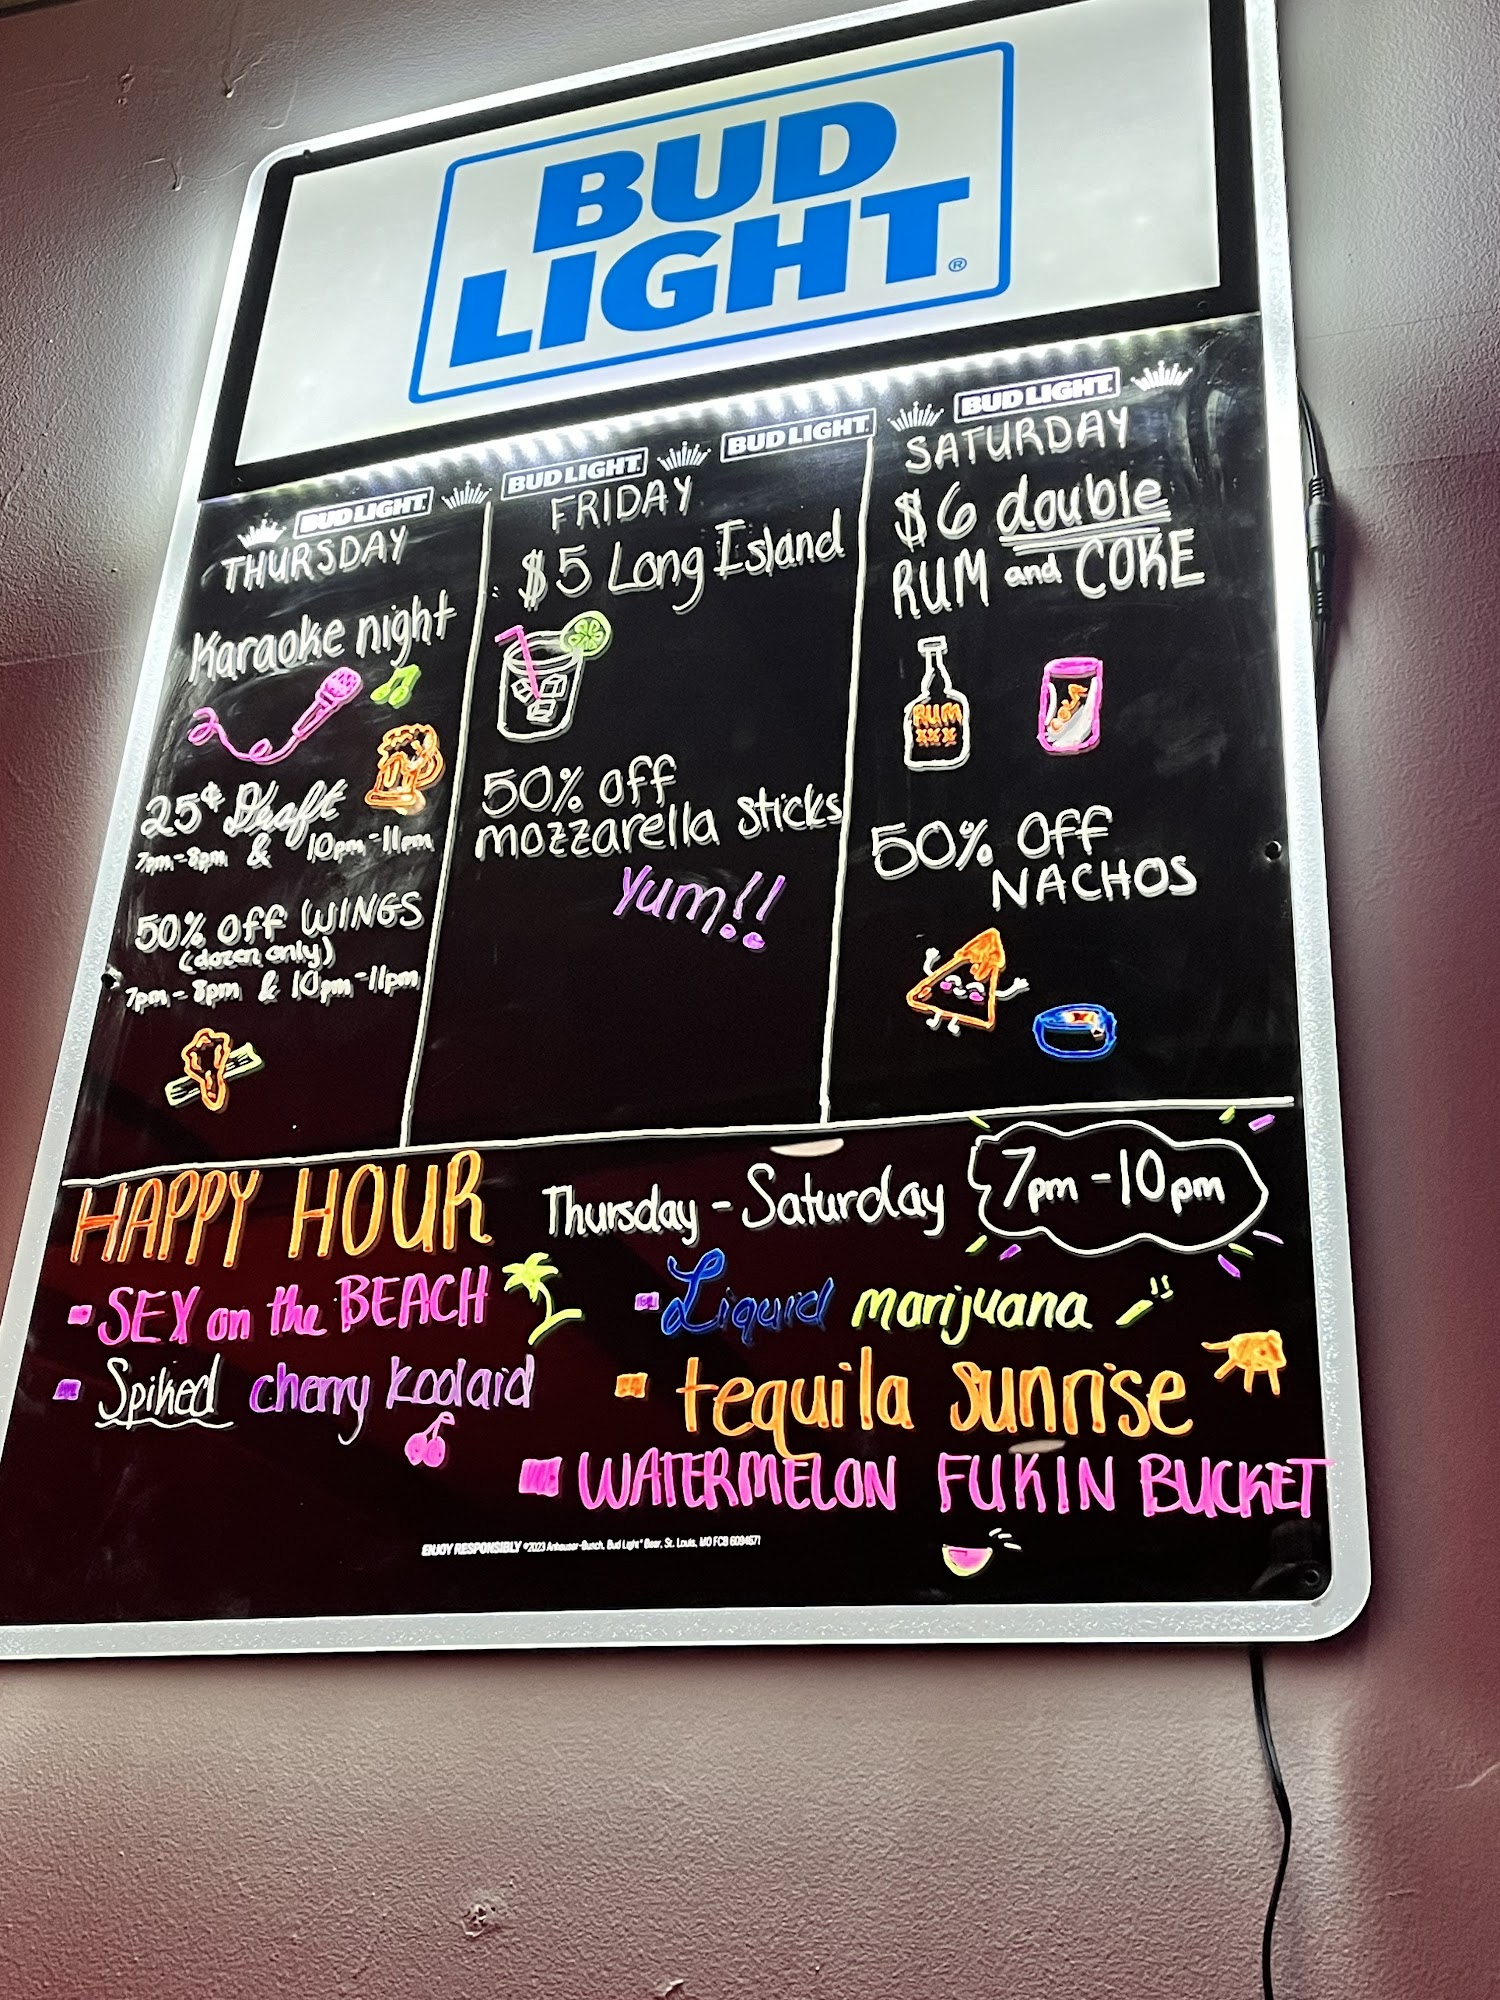 BUD
LIGHT®
BUD LIGHT.
BUD LIGHT.
BUD LIGHT.
BUD LIGHT.
THURSDAY
Karaoke night
25¢ Draft
7pm-8pm & 10pm-11pm
50% off WINGS
(dozen only)
7pm-8pm & 10pm-11pm
FRIDAY
$5 Long Island
50% off
mozzarella sticks
Yum!!
SATURDAY
$6 double
RUM and COKE
RUM
XXX
50% off
NACHOS
HAPPY HOUR Thursday-Saturday 7pm-10pm
SEX on the BEACH
Spiked cherry koolaid
Liquid marijuana
tequila sunrise
WATERMELON FUKIN BUCKET
ENJOY RESPONSIBLY ©2023 Anheuser-Busch, Bud Light® Beer, St. Louis, MO FCB 6094671